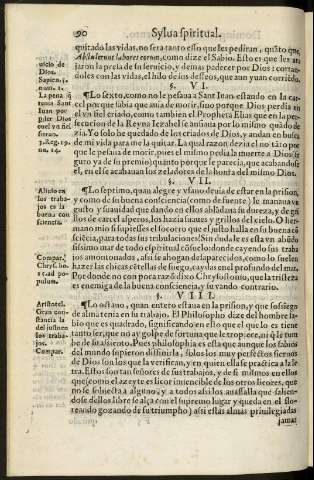 90 Sylua spiritual.
quitado las vidas, no sera tanto esso que les pediran, quãto que,
Abstulerunt labores eorum, como dize el Sabio. Esto es que les at-
jaron la presa de su seruicio, y demas padecer por Dios: cortan-
doles con las vidas, el hilo de sus desseos, que aun yuan corriẽdo.
§. VI.
¶Lo sexto, como no le pesaua a Sant Iuan estando en la car-
cel porque sabia que auia de morir, sino porque Dios perdia en
el vn fiel criado, como tambien el Propheta Elias que en la per-
secucion de la Reyna Iezabel se ensañaua por lo mismo quãdo de
zia. Yo solo he quedado de los criados de Dios, y andan en busca
de mi vida para me la quitar. La qual razon dezia el no tãto por
que le pesaua de morir, pues el mismo pedia la muerte a Dios (se
guro ya de su premio) quanto porque le parecia, que acabando se
el, en el se acabauan los zeladores de la honra del mismo Dios.
§. VII.
¶Lo septimo, quan alegre y vfano deuia de estar en la prision,
y como de su buena consciencia (como de fuente) le manaua vn
gusto y suauidad que dando en ellos ablandaua su dureza, y de gri
llos de carcel asperos, los hazia suaues y grillos del cielo. O her-
mano mio si supiesses el socorro que el justo halla en su buena cõ
sciẽcia, para todas sus tribulaciones! Sin duda le es ella en abũdo
sissimo mar de todo espiritual consuelo: donde cayendo sus traba
jos amontonados, assi se ahogan desaparecidos, como lo suelen
hazer las chicas cẽtellas de fuego, caydas en el profundo del mar.
Por donde no con poca razõ dixo Chrysostomo, que la tristeza
es enemiga de la buena consciencia, y su vando contrario.
§. VIII.
¶Lo octauo, quan entero se mostraua en la prision, y que sossiego
de alma tenia en su trabajo. El Philosopho dize del hombre sa-
bio que es quadrado, significando en esso que el que lo es tiene
tanto ser, que no ay golpe de fortuna que le tropiece, ni q̃ le tum
be de su assiento. Pues philosophia es esta que aunque los sabios
del mundo supieron dissinirla, solos los muy perfectos sieruos
de Dios son los que la verifican, y en quien ella se practica a la le
tra. Estos son tan señores de sus trabajos, y de si mismos en ellos
que (como el azeyte es licor inuencible de los otros licores, que
no se subjecta a alguno, y a todos assi los auassalla que saliẽn-
dose dellos libre se alça con el supremo lugar y queda en el flo-
reando gozando de su triumpho) assi estas almas priuilegiadas
jamas
uicio de
Dios.
Sapien. 5.
La pena q̃
tenia Sant
Iuan por
Dios
3. Reg. 19.
Aliuio en
los traba-
jos es la
buena con
sciencia.
Compar.
Chrys. ho.
ad po-
pulum.
Aristotel.
Gran con-
stancia la
del justo en
los traba-
jos.
Compar.